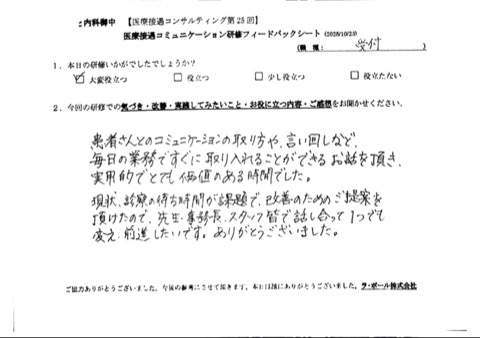 内科御中 【医療接遇コンサルティング第25回】
医療接遇コミュニケーション研修フィードバックシート (2025/10/23)
(職種: 受付 )
1. 本日の研修いかがでしたでしょうか?
☑ 大変役立つ □ 役立つ □ 少し役立つ □ 役立たない
2. 今回の研修での気づき・改善・実践してみたいこと・お役に立つ内容・ご感想をお聞かせください。
患者さんとのコミュニケーションの取り方や、言い回しなど、
毎日の業務ですぐに取り入れることができるお話を頂き、
実用的でとても価値のある時間でした。
現状、診察の待ち時間が課題で、改善のためのご提案を
頂けたので、先生・事務長・スタッフ皆で話し合って1つでも
変え、前進したいです。ありがとうございました。
ご協力ありがとうございました。今後の参考にさせて頂きます。本日は誠にありがとうございました。ラ・ポール株式会社